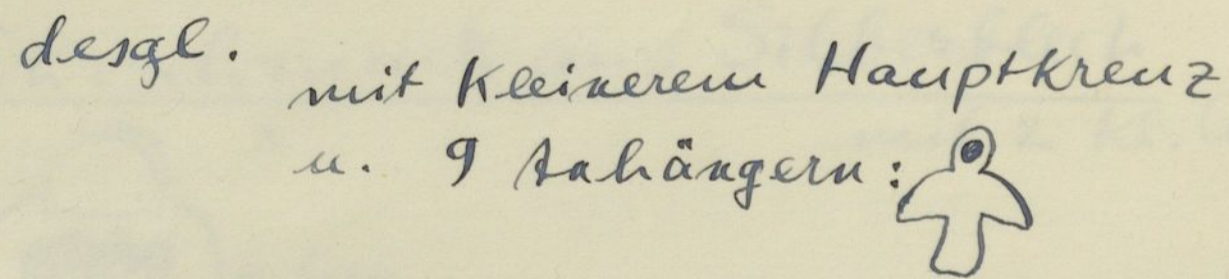 desgl.
mit kleinerem Hauptkreuz
u. 9 Anhängern: